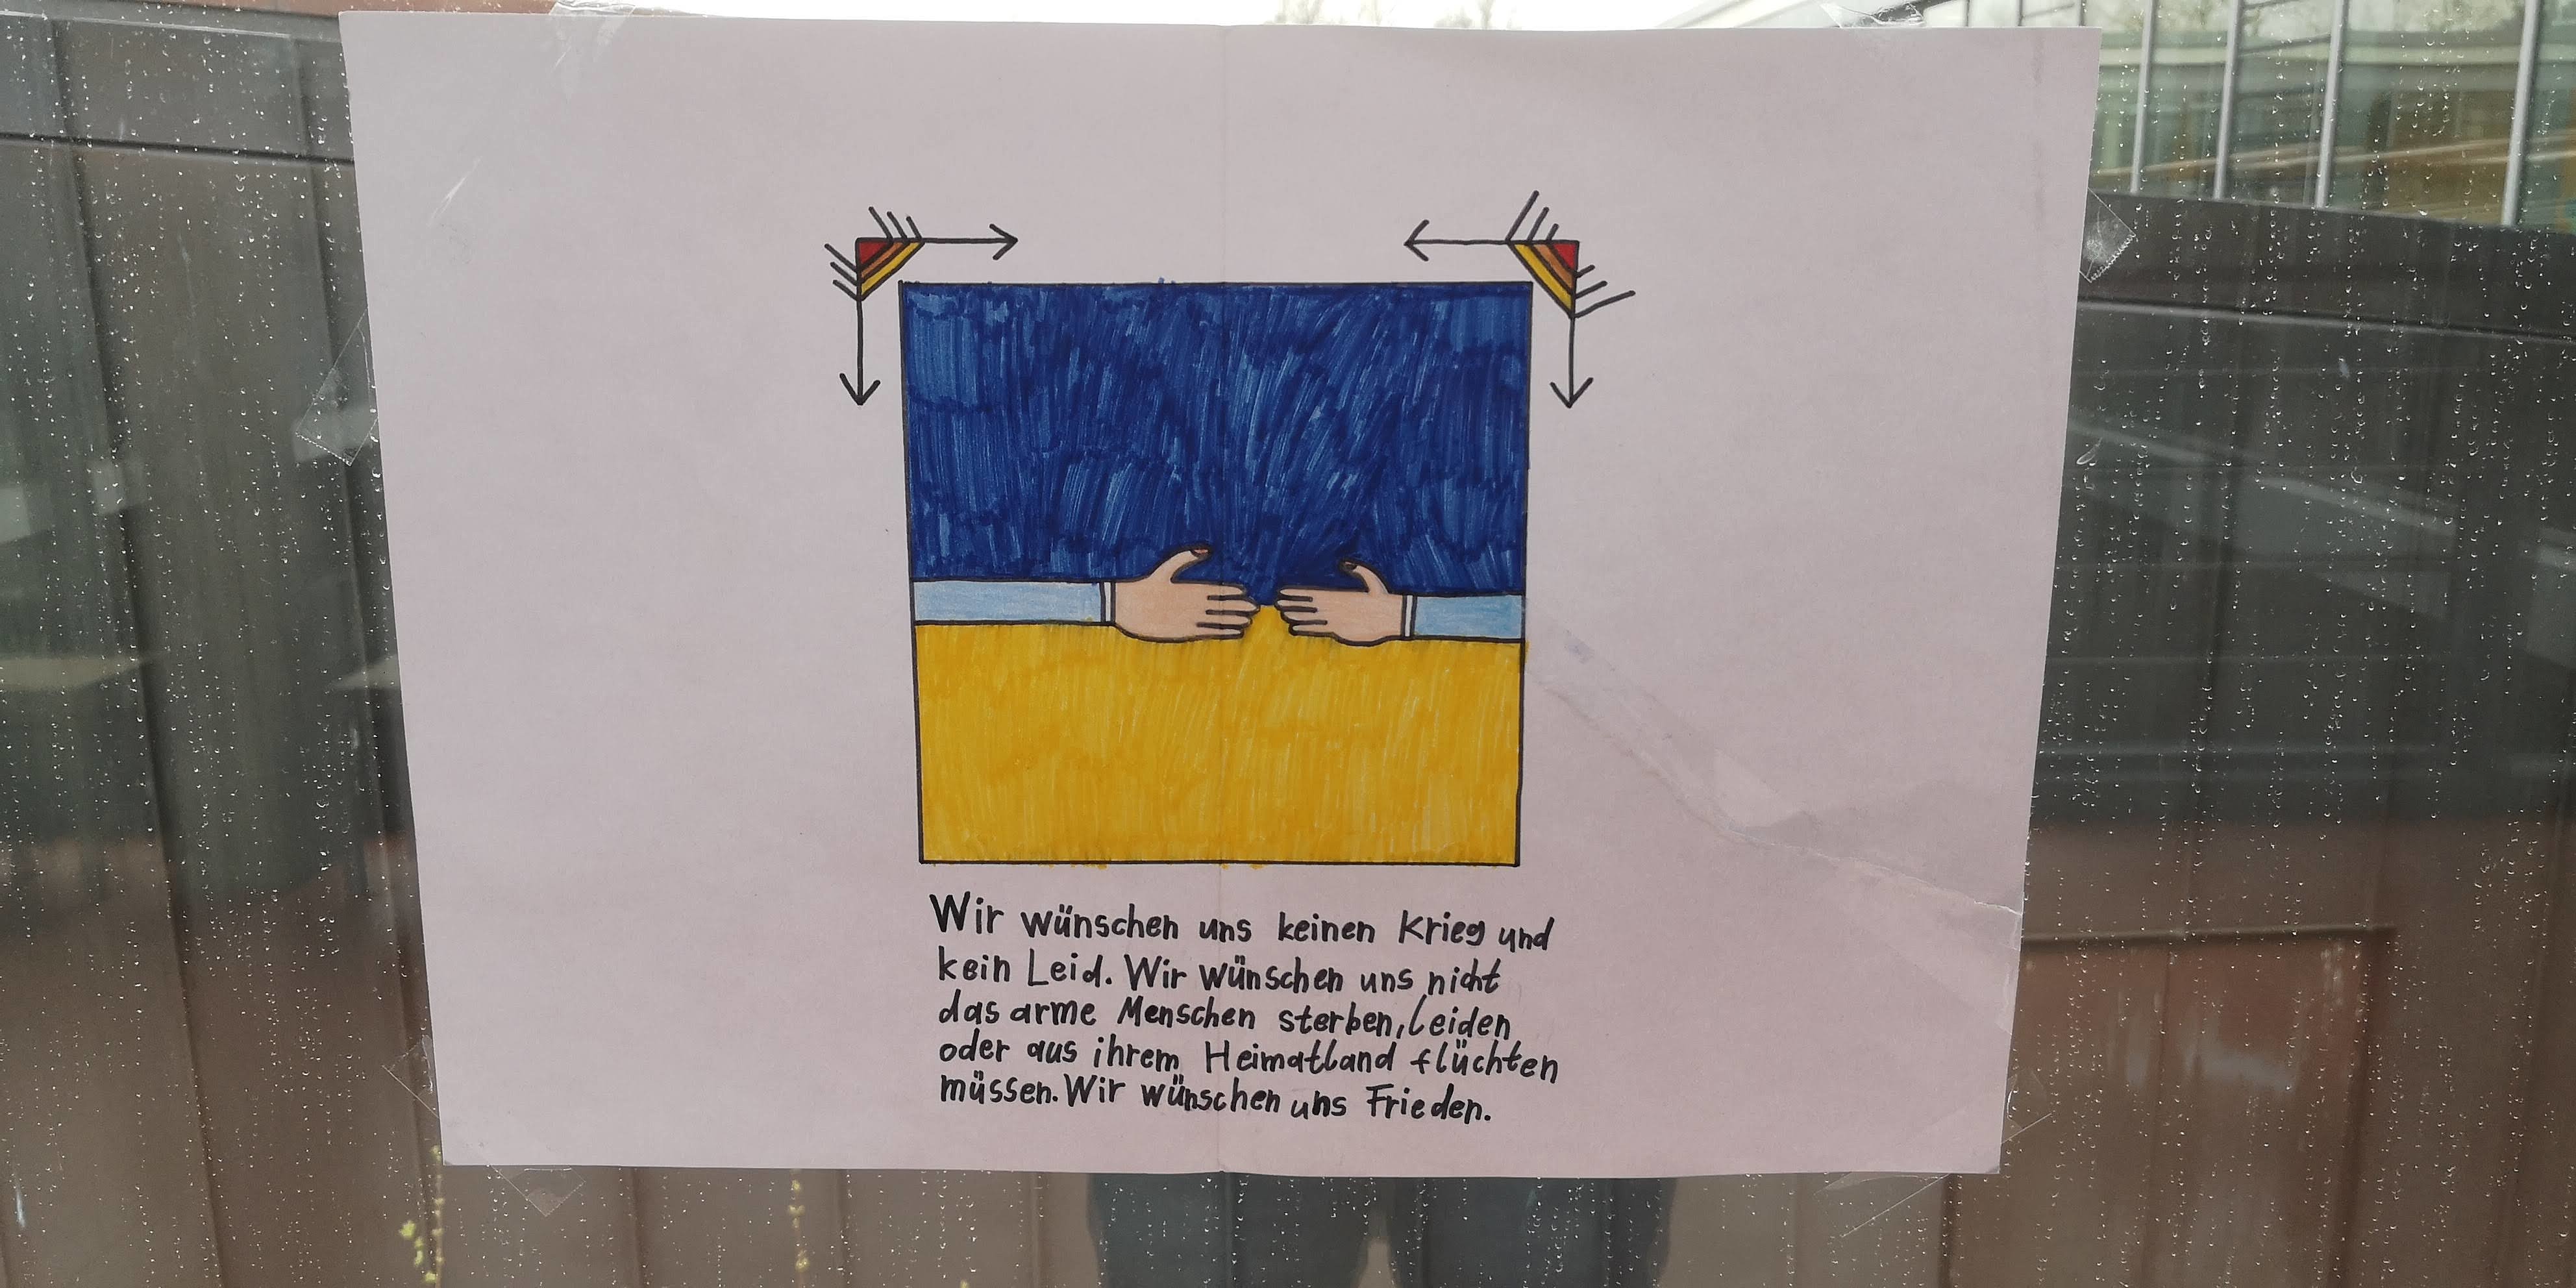 Wir wünschen uns keinen Krieg und
kein Leid. Wir wünschen uns nicht
das arme Menschen sterben, leiden
oder aus ihrem Heimatland flüchten
müssen. Wir wünschen uns Frieden.